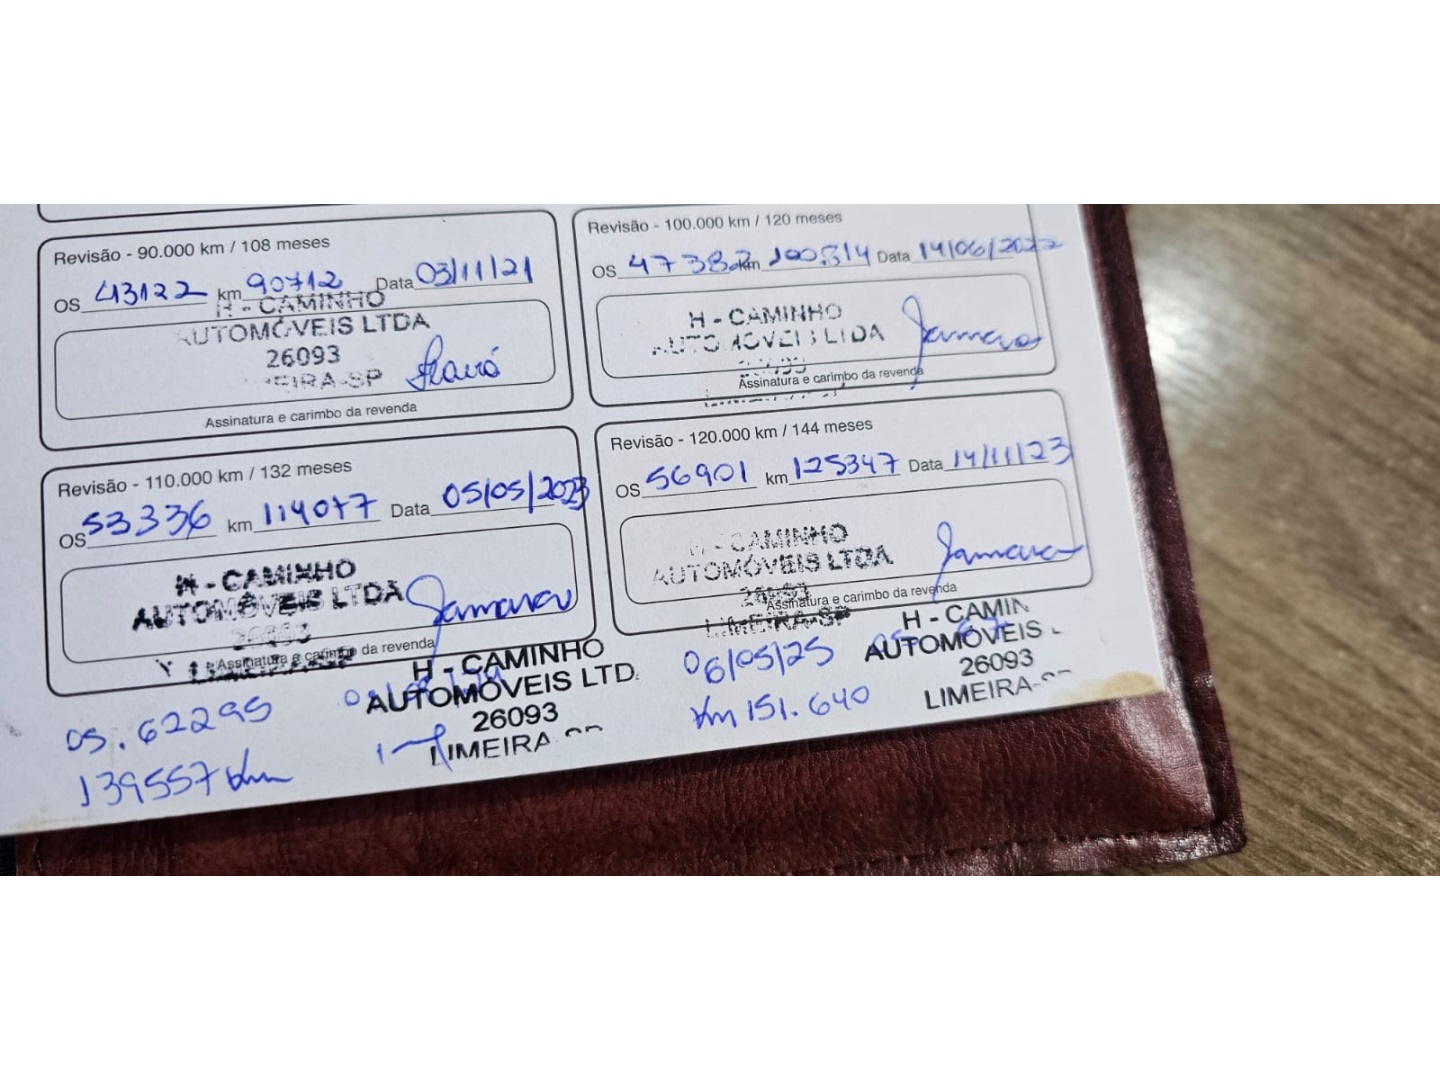 Revisão - 90.000 km / 108 meses
OS 43122 km 90712 Data 03/11/21
H - CAMINHO
AUTOMÓVEIS LTDA
26093
Assinatura e carimbo da revenda
Revisão - 100.000 km / 120 meses
OS 47382 km 100.814 Data 14/06/2022
H - CAMINHO
AUTOMÓVEIS LTDA
26093
Assinatura e carimbo da revenda
Revisão - 110.000 km / 132 meses
OS 53336 km 114077 Data 05/05/2023
H - CAMINHO
AUTOMÓVEIS LTDA
26093
Assinatura e carimbo da revenda
LIMEIRA-SP
Revisão - 120.000 km / 144 meses
OS 56901 km 125347 Data 14/11/23
H - CAMINHO
AUTOMÓVEIS LTDA
26093
Assinatura e carimbo da revenda
LIMEIRA-SP
OS. 62295
139557 km
H - CAMINHO
AUTOMÓVEIS LTD
26093
LIMEIRA
06/05/25
km 151.640
H - CAMIN
AUTOMÓVEIS L
26093
LIMEIRA-